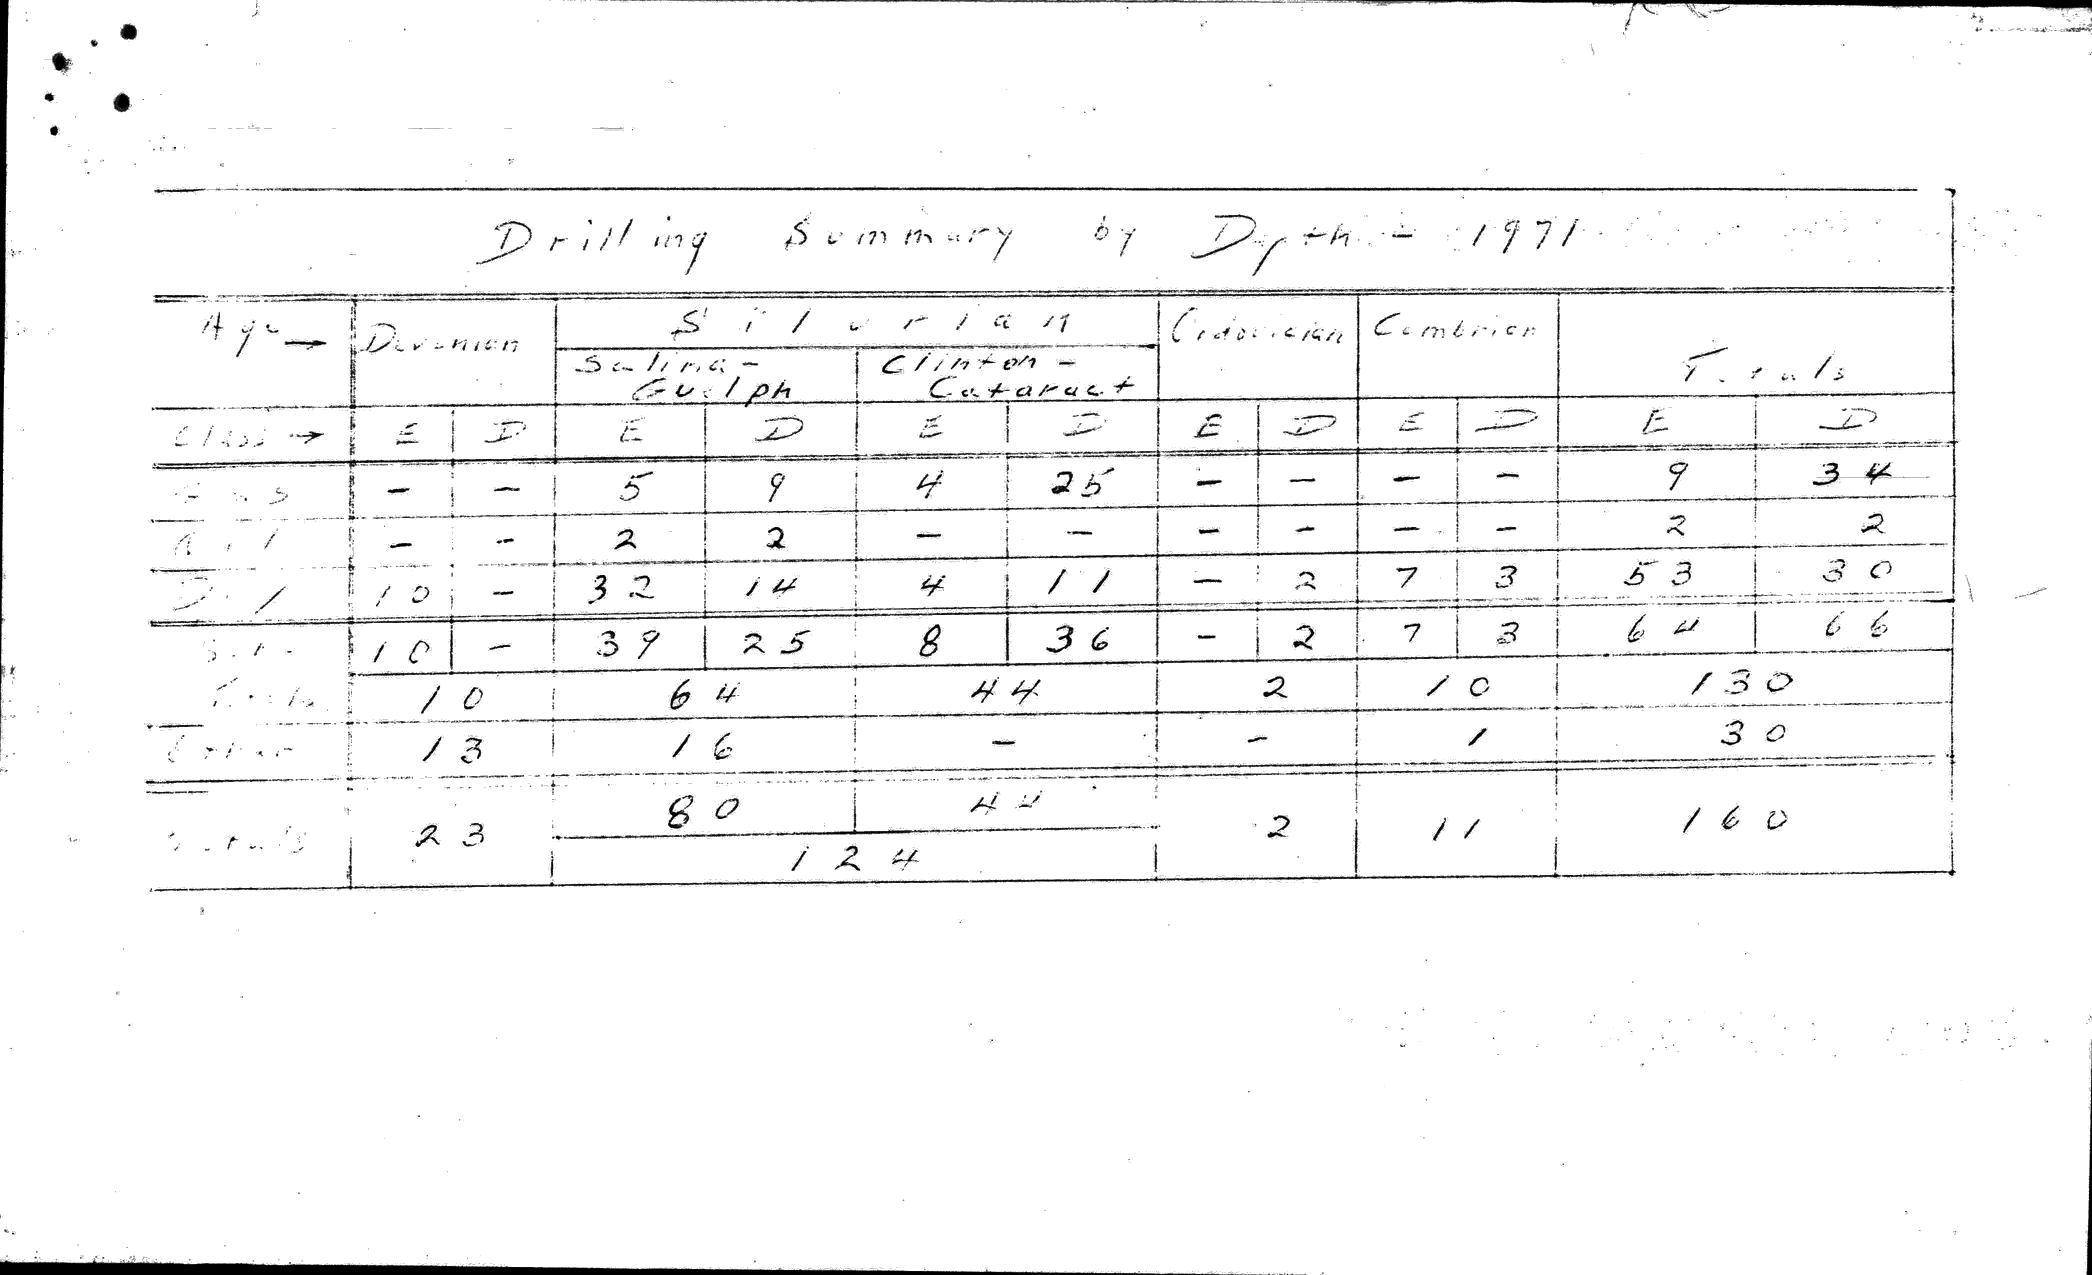 Drilling Summary by Depth - 1971
Age → Devonian Silurian Ordovician Cambrian Totals
Salina-Guelph Clinton-Cataract
Class → E D E D E D E D E D E D
Gas - - 5 9 4 25 - - - - 9 34
Oil - - 2 2 - - - - - - 2 2
Dry 10 - 32 14 4 11 - 2 7 3 53 30
Sub- 10 - 39 25 8 36 - 2 7 3 64 66
Totals 10 64 44 2 10 130
Other 13 16 - - 1 30
Totals 23 80 44 2 11 160
124